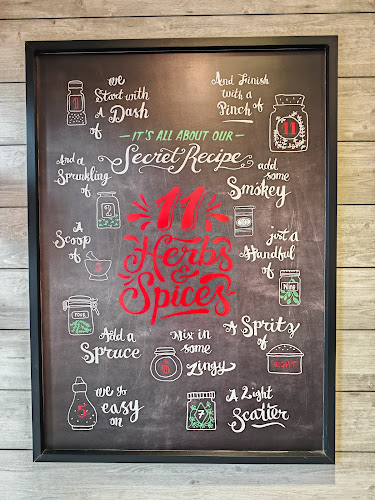 we
Start with
A Dash
of
1
And Finish
with a
Pinch of
11
IT'S ALL ABOUT OUR
Secret Recipe
And a
Sprinkling
of
2
add
some
Smokey
11
Herbs
&
Spices
A
Scoop
of
3
just a
Handful
of
Nine
FOUR
Add a
Spruce
Mix in
some
Zingy
6
A Spritz
of
EIGHT
5
we go
easy
on
7
A Light
Scatter